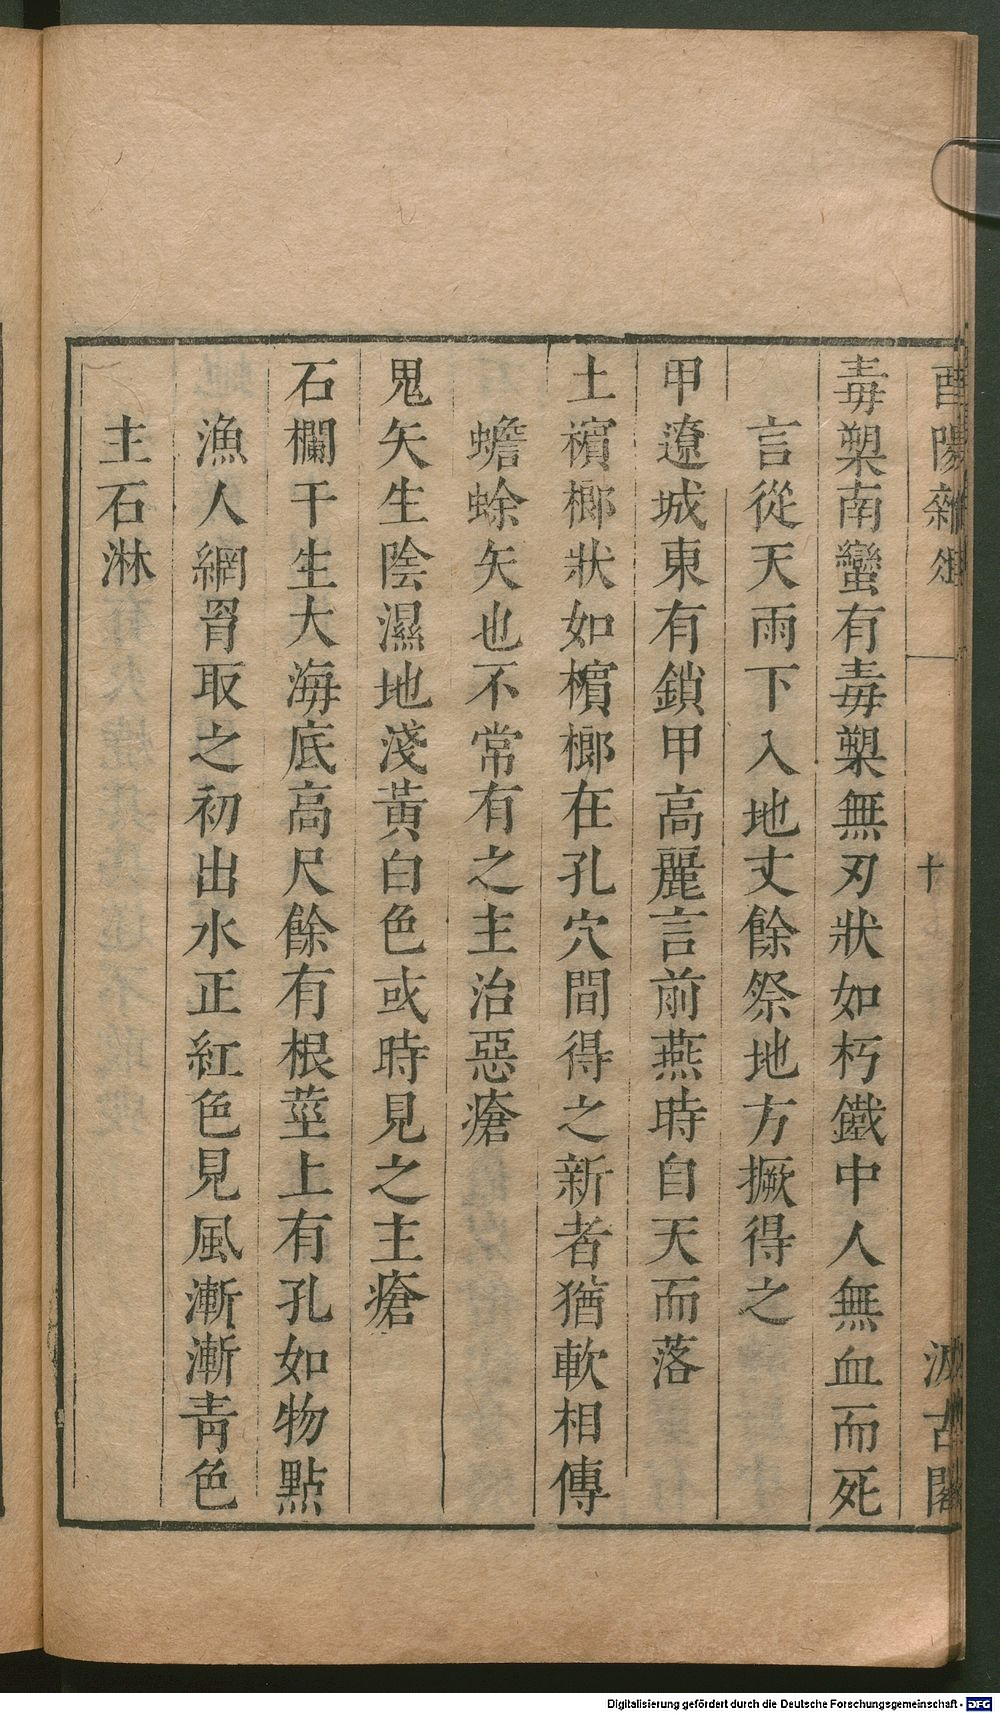 酉陽雜俎 十 汲古閣
毒槊南蠻有毒槊無刃狀如朽鐵中人無血而死
言從天雨下入地丈餘祭地方撅得之
甲遼城東有鎖甲高麗言前燕時自天而落
土檳榔狀如檳榔在孔穴間得之新者猶軟相傳
蟾蜍矢也不常有之主治惡瘡
鬼矢生陰濕地淺黃白色或時見之主瘡
石欄干生大海底高尺餘有根莖上有孔如物點
漁人網罥取之初出水正紅色見風漸漸青色
主石淋
Digitalisierung gefördert durch die Deutsche Forschungsgemeinschaft - DFG